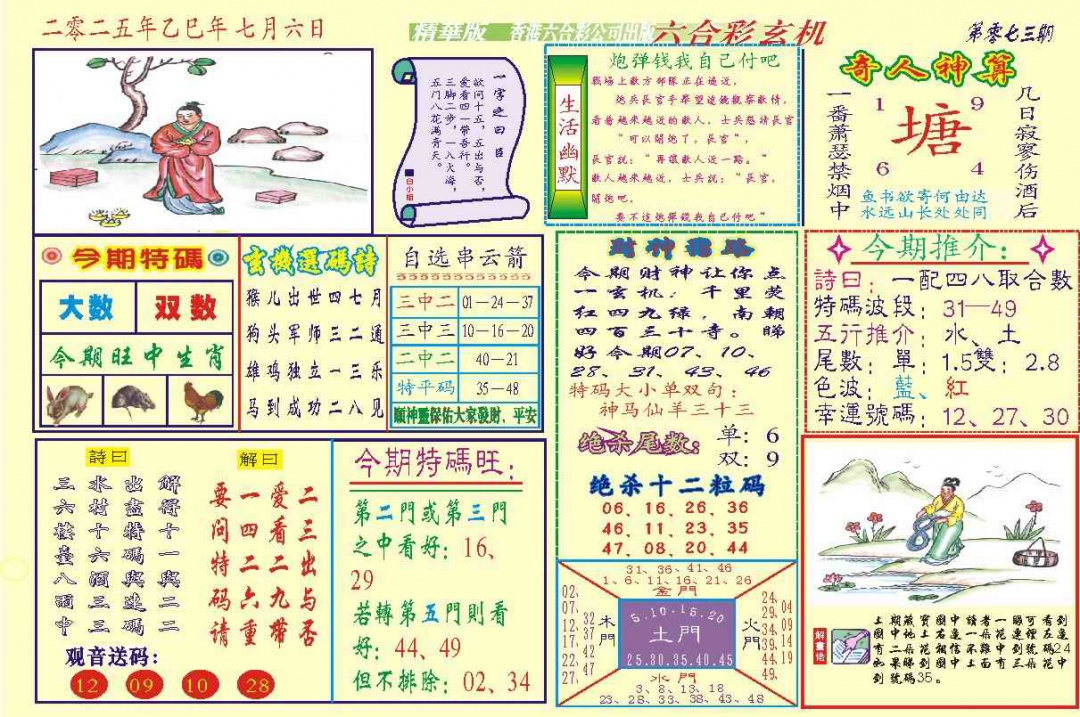 二零二五年乙巳年七月六日
精華版 香港六合彩公司出版 六合彩玄机
第零七三期
一字之曰
欲问十五，五出与否，
爱看四一带吾行。
三脚二步，一入火海，
五门八花满青天。
白小姐
生活幽默
炮弹钱我自己付吧
戰場上敵方部隊正在逼近，
炮兵長官手舉望遠鏡觀察敵情，
看着越来越近的敵人，士兵懇請長官
“可以開炮了，長官”
長官説：“再讓敵人近一路。”
敵人越来越近，士兵説：“長官，
開炮吧，
要不這炮弹錢我自己付吧”
奇人神算
一番萧瑟禁烟中
几日寂寥伤酒后
1 9
塘
6 4
鱼书欲寄何由达
水远山长处处同
今期特碼
大数 双数
今期旺中生肖
玄機選碼詩
猴儿出世四七月
狗头军师三二通
雄鸡独立一三乐
马到成功二八见
自选串云箭
三中二 01—24—37
三中三 10—16—20
二中二 40—21
特平码 35—48
願神靈保佑大家發財、平安
財神
今期财神让你点
一玄机：千里荧
红四九绿，南朝
四百三十寺。睇
好今期07、10、
28、31、43、46
特码大小单双句：
神马仙羊三十三
绝杀尾数：
单：6
双：9
绝杀十二粒码
06、16、26、36
46、11、23、35
47、08、20、44
今期推介：
詩曰：一配四八取合數
特碼波段：31—49
五行推介：水、土
尾數：單：1.5雙：2.8
色波：藍、紅
幸運號碼：12、27、30
詩曰
解曰
三水出解
六村盡得
樓十特十
臺六碼一
八酒與與
雨三速二
中三碼二
要一爱二
问四看三
特二二出
码六九与
请重带否
观音送码：
12 09 10 28
今期特碼旺：
第二門或第三門
之中看好：16、
29
若轉第五門則看
好：44、49
但不排除：02、34
31、36、41、46
1、6、11、16、21、26
金門
02、07、12、17、22、27、
32、37、42、47
木門
5.10.15.20
土門
25.30.35.40.45
火門
24、29、34、39、44、49、
04、09、14、19
水門
3、8、13、18
23、28、33、38、43、48
解畫佬
上期藏寶圖中讀者一睇可看到
圖中他上右邊一朵花連煙左邊
有二朵花相信不難中到號碼24
如果睇到圖中上面有三朵花中
到號碼35。